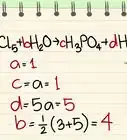 Cl₅+bH₂O→cH₃PO₄+dH
a=1
c=a=1
d=5a=5
b=½(3+5)=4